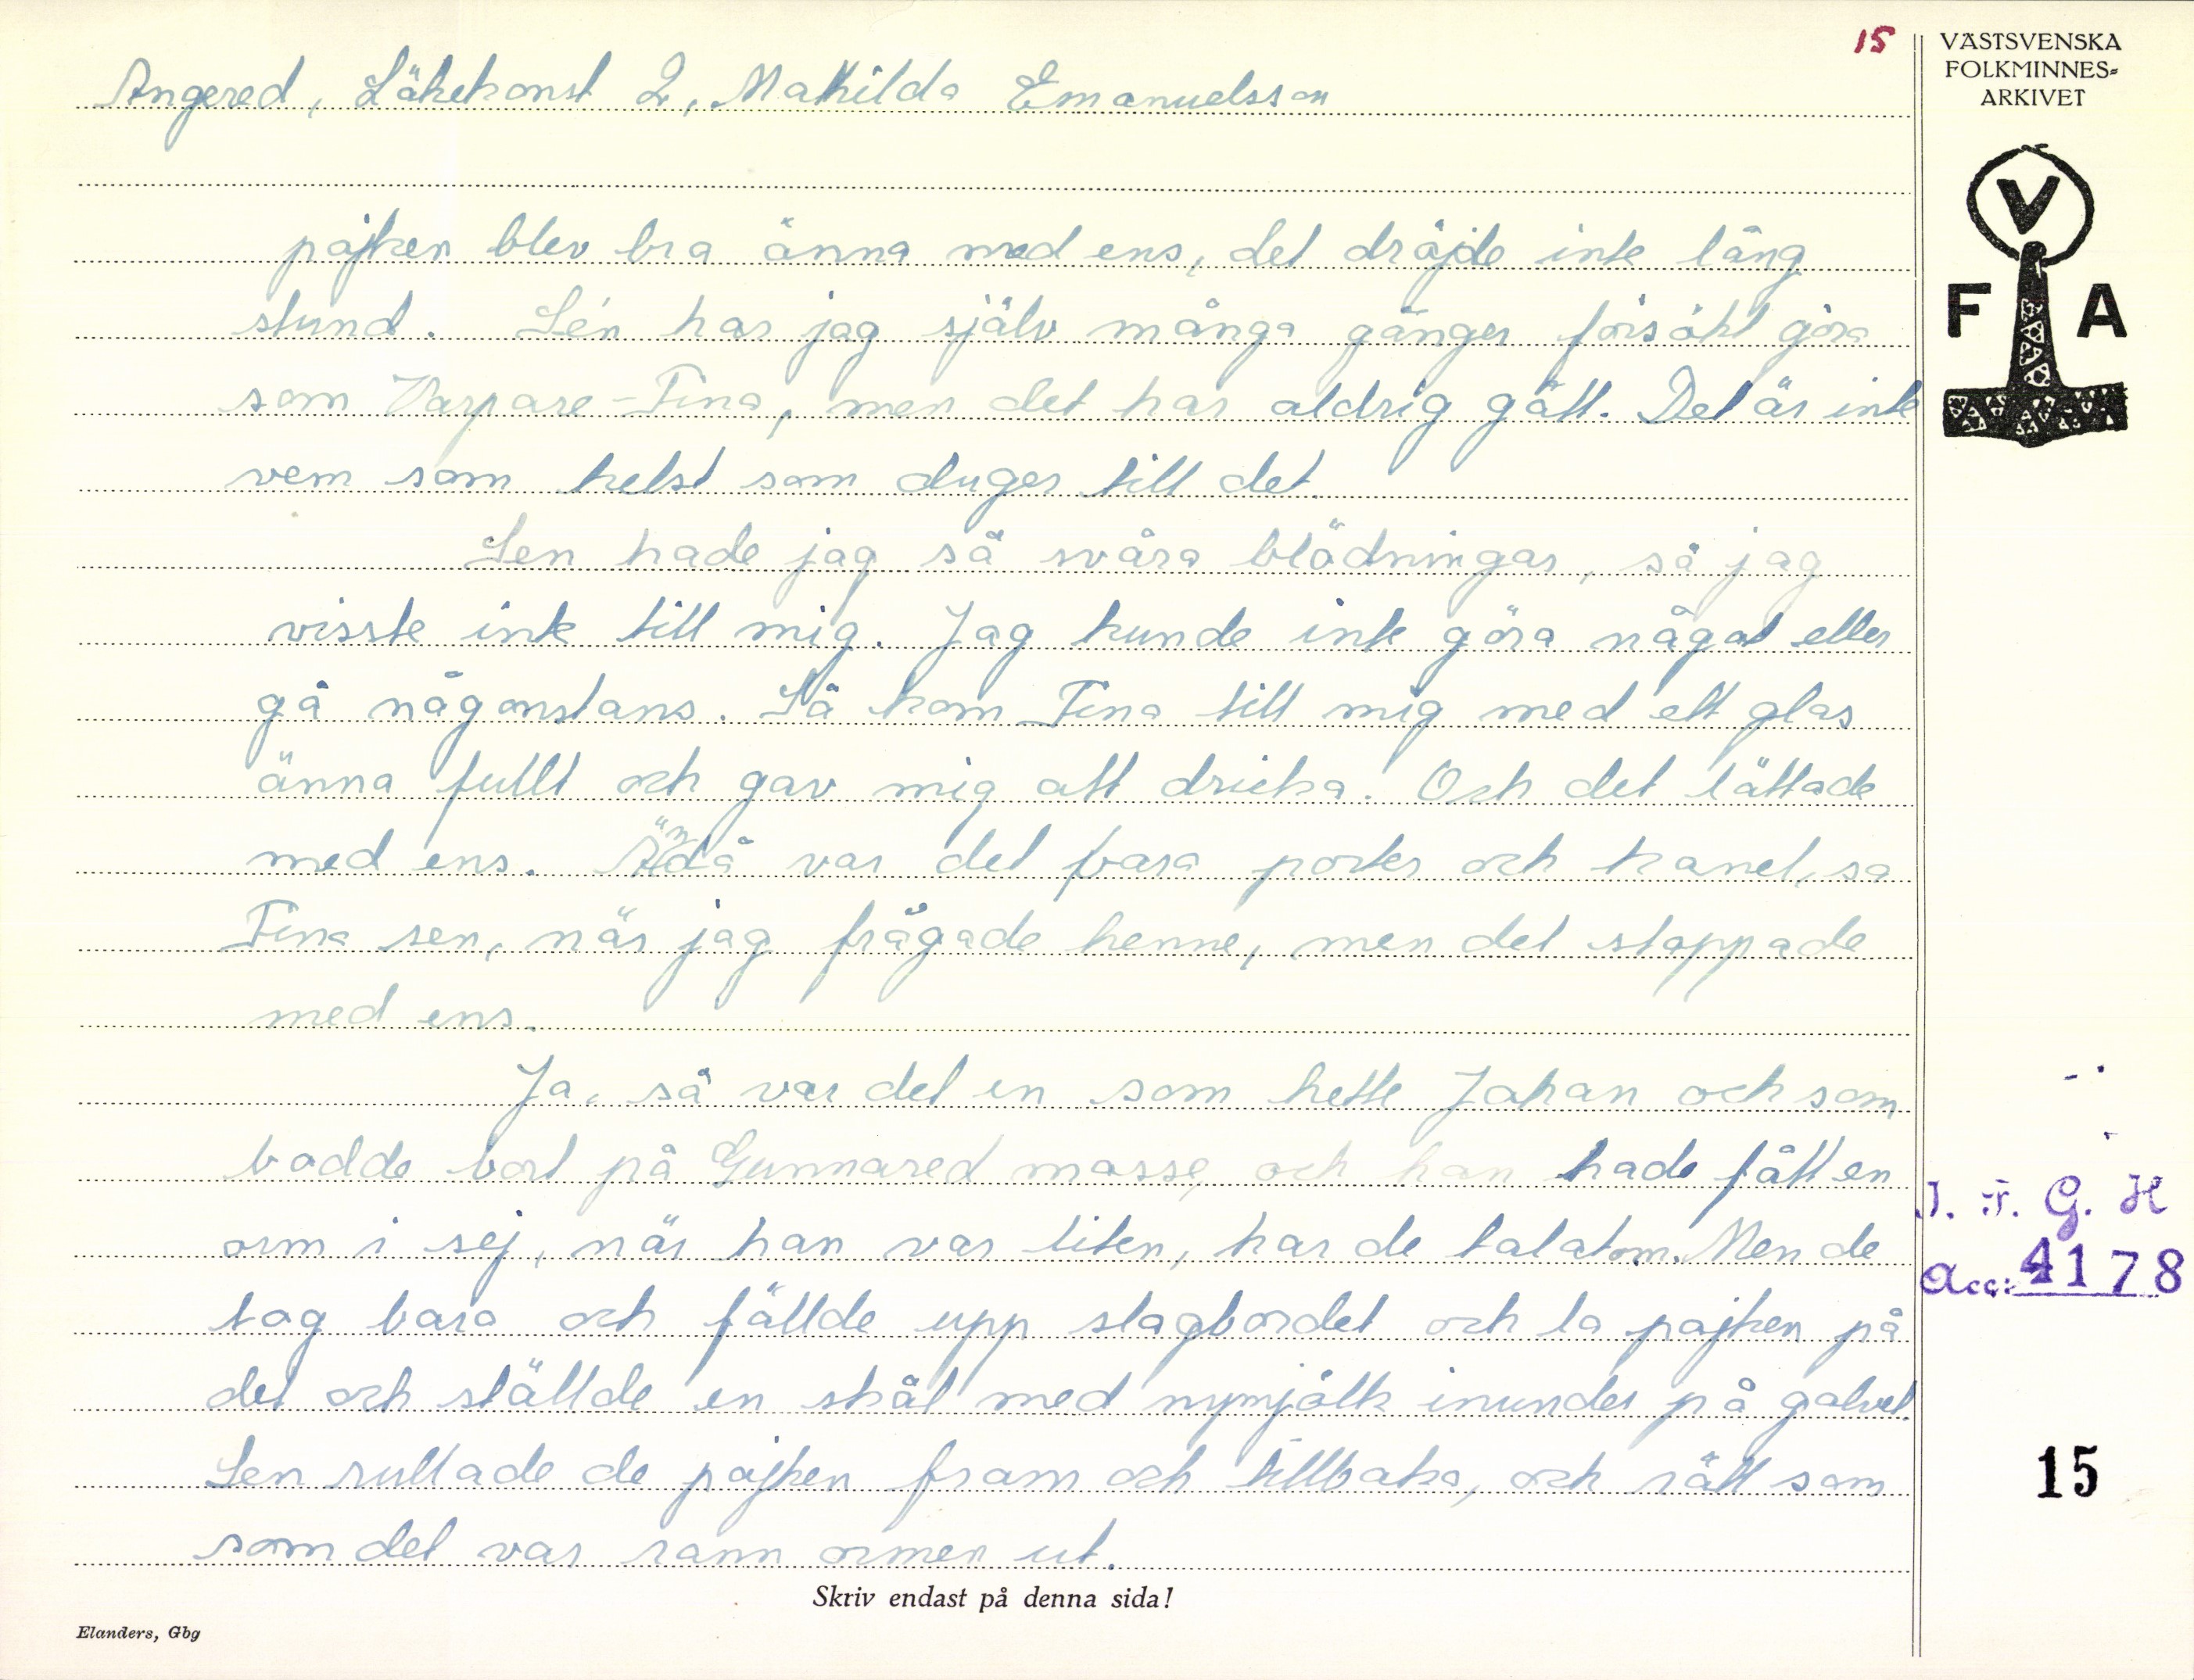 15
VÄSTSVENSKA
FOLKMINNES-
ARKIVET
V
F A
Angered, Läkekonst 2, Mathilda Emanuelsson
pojken blev bra änna med ens, det dröjde inte lång
stund. Sen har jag själv många gånger försökt göra
som Varpare-Fina, men det har aldrig gått. Det är inte
vem som helst som duger till det.
Sen hade jag så svåra blödningar, så jag
visste inte till mig. Jag kunde inte göra något eller
gå någonstans. Så kom Fina till mig med ett glas
änna fullt och gav mig att dricka. Och det lättade
med ens. Ändå var det bara porter och kanel, sa
Fina sen, när jag frågade henne, men det stoppade
med ens.
Ja, så var det en som hette Johan och som
bodde bort på Gunnared mosse, och han hade fått en
orm i sej, när han var liten, har de talat om. Men de
tog bara och fällde upp slagbordet och la pojken på
det och ställde en skål med nymjölk inunder på golvet.
Sen rullade de pojken fram och tillbaka, och rätt som
som det var rann ormen ut.
I. F. G. H
Acc: 4178
15
Skriv endast på denna sida!
Elanders, Gbg